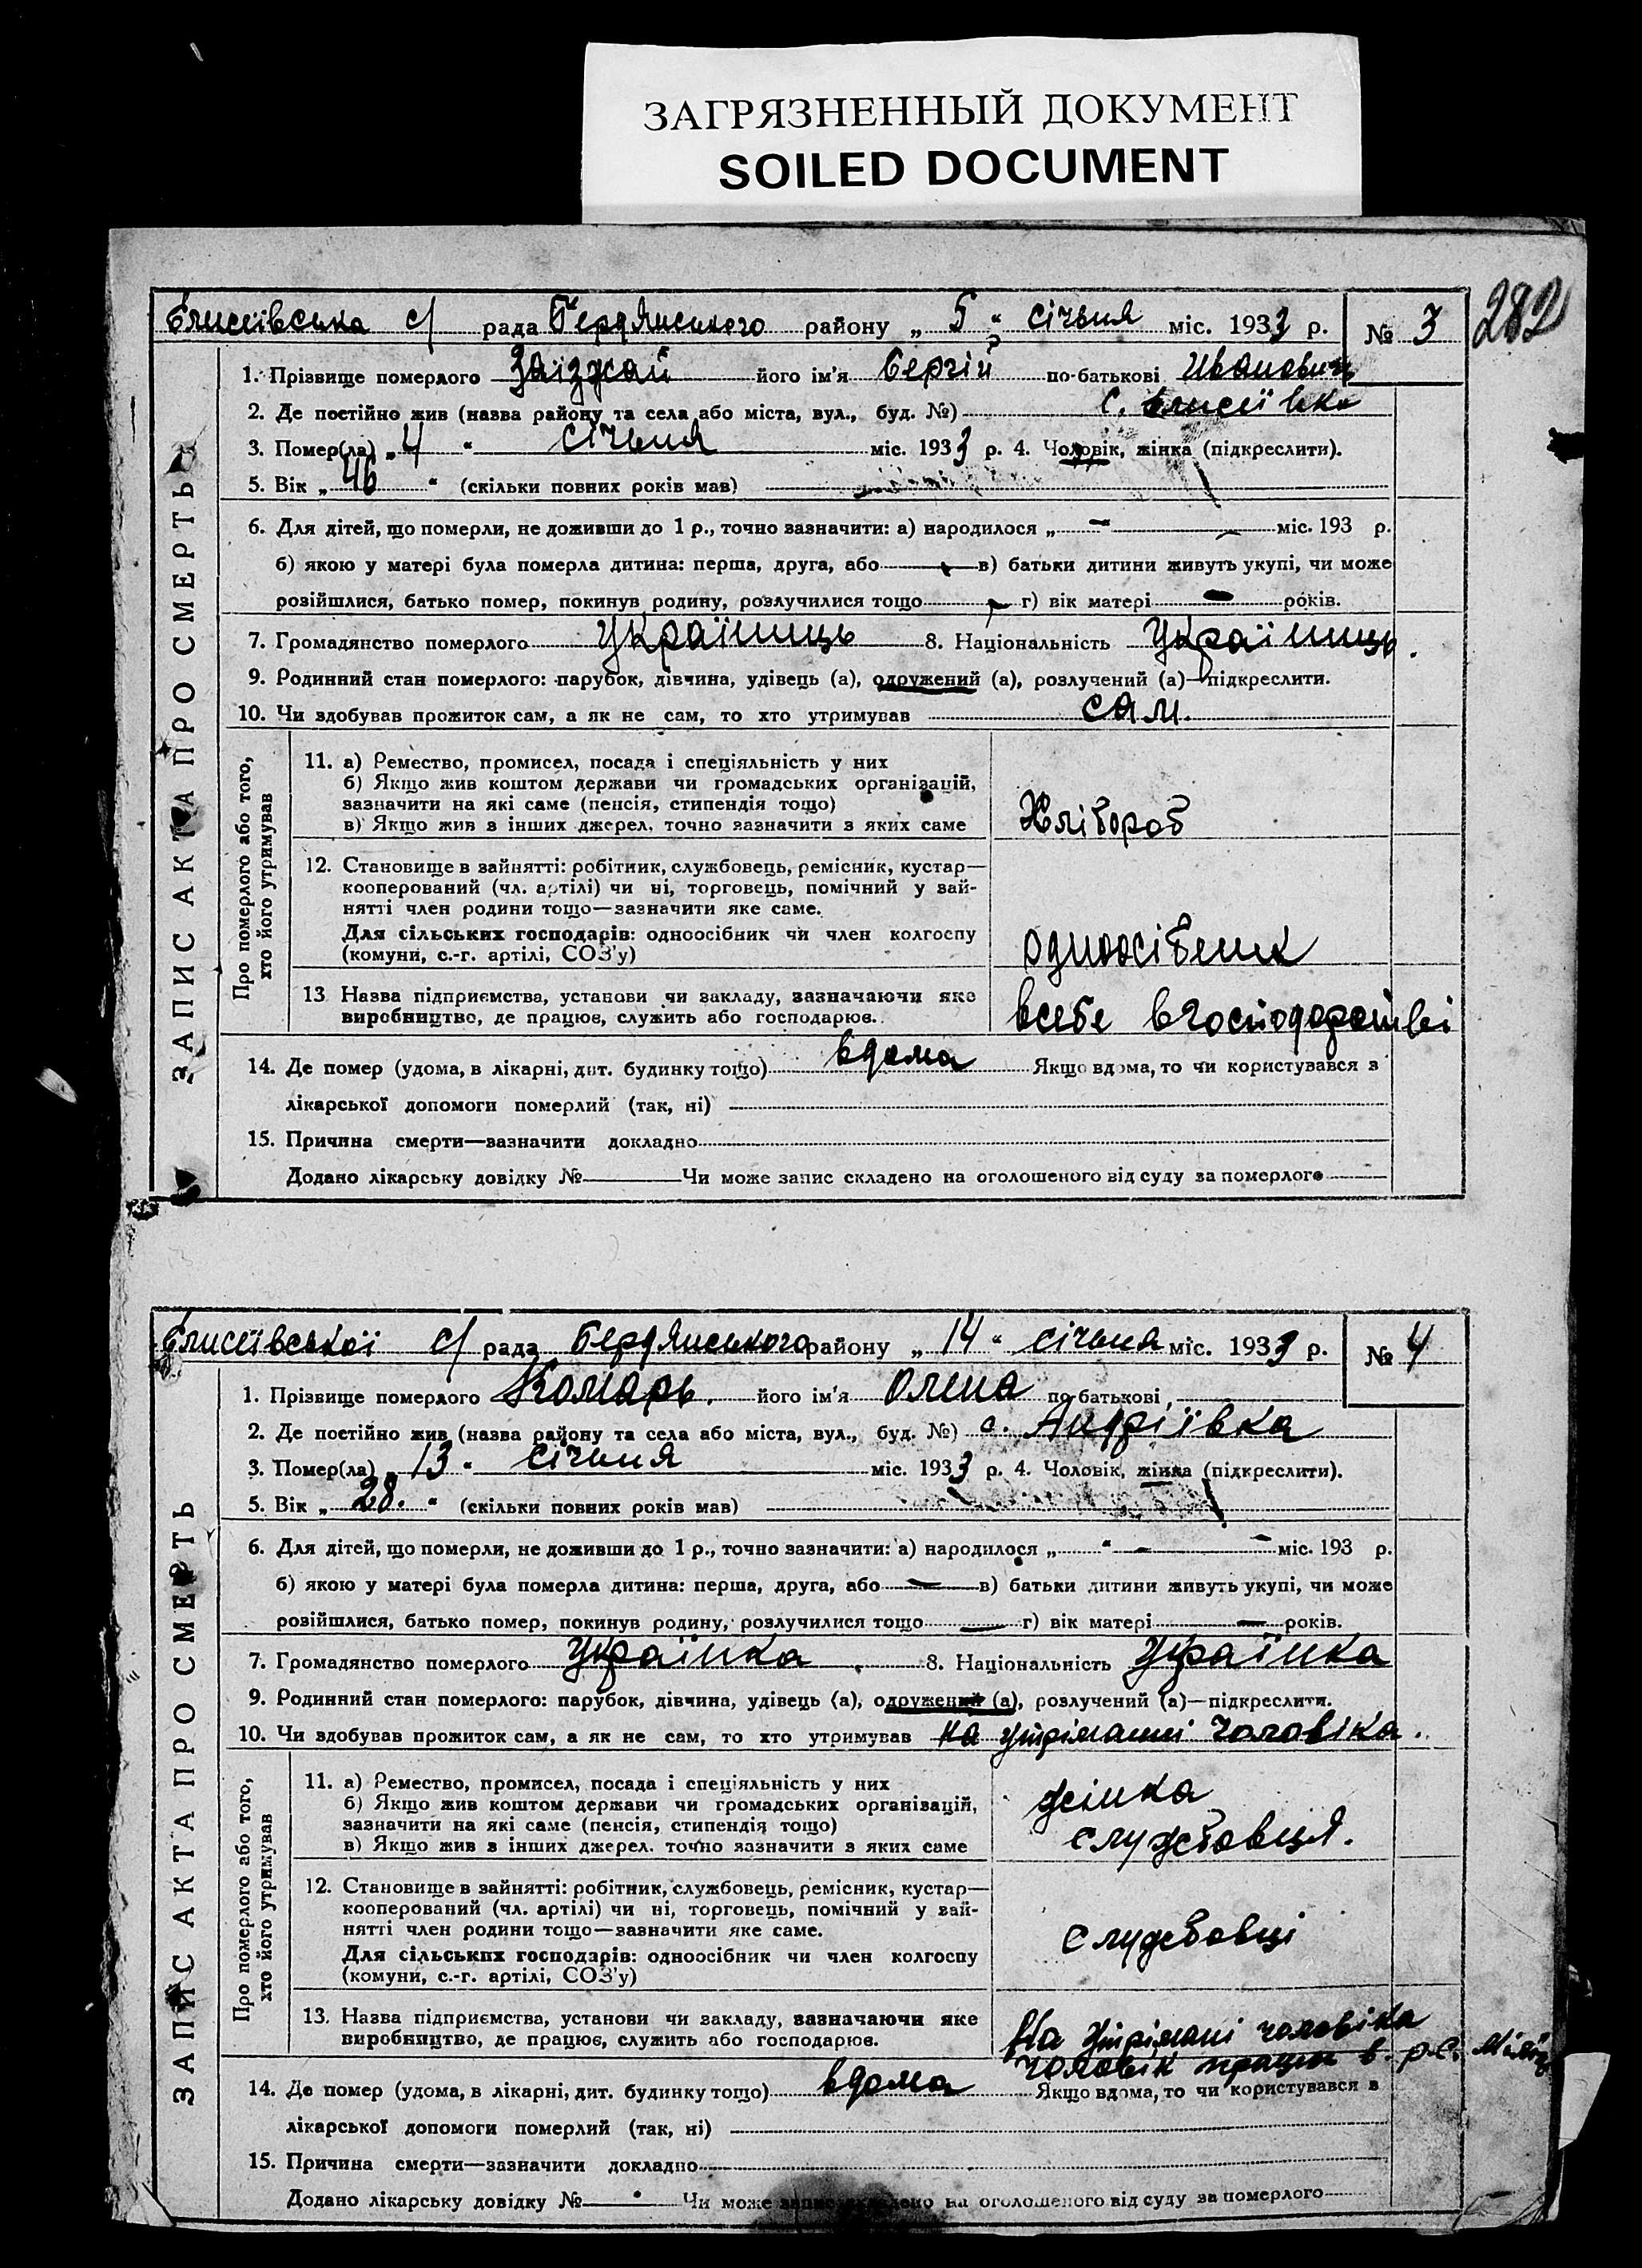 ЗАГРЯЗНЕННЫЙ ДОКУМЕНТ
SOILED DOCUMENT
282
ЗАПИС АКТА ПРО СМЕРТЬ
Єлисеївська с/ рада Бердянського району „ 5 “ січьня міс. 1933 р. № 3
1. Прізвище померлого Заїзжай його ім'я Сергій по-батькові Иванович
2. Де постійно жив (назва району та села або міста, вул., буд. №) с. Єлисеївка
3. Помер(ла) „ 4 “ січьня міс. 1933 р. 4. Чоловік, жінка (підкреслити).
5. Вік „ 46 “ (скільки повних років мав)
6. Для дітей, що померли, не доживши до 1 р., точно зазначити: а) народилося „ – міс. 193 р.
б) якою у матері була померла дитина: перша, друга, або – в) батьки дитини живуть укупі, чи може
розійшлися, батько помер, покинув родину, розлучилися тощо – г) вік матері – років.
7. Громадянство померлого Україниць 8. Національність Україниць.
9. Родинний стан померлого: парубок, дівчина, удівець (а), одружений (а), розлучений (а)—підкреслити.
10. Чи здобував прожиток сам, а як не сам, то хто утримував сам.
Про померлого або того, хто його утримував
11. а) Ремество, промисел, посада і спеціяльність у них
б) Якщо жив коштом держави чи громадських організацій,
зазначити на які саме (пенсія, стипендія тощо)
в) Якщо жив з інших джерел, точно зазначити з яких саме
Хлібороб
12. Становище в зайнятті: робітник, службовець, ремісник, кустар—
кооперований (чл. артілі) чи ні, торговець, помічний у зай-
нятті член родини тощо—зазначити яке саме.
Для сільських господарів: одноосібник чи член колгоспу
(комуни, с.-г. артілі, СОЗ'у)
одноосібеник
13 Назва підприємства, установи чи закладу, зазначаючи яке
виробництво, де працює, служить або господарює.
всебе в господарстві
14. Де помер (удома, в лікарні, дит. будинку тощо) вдома Якщо вдома, то чи користувався з
лікарської допомоги померлий (так, ні)
15. Причина смерти—зазначити докладно
Додано лікарську довідку № Чи може запис складено на оголошеного від суду за померлого
ЗАПИС АКТА ПРО СМЕРТЬ
Єлисеївської с/ рада Бердянського району „ 14 “ січьня міс. 1933 р. № 4
1. Прізвище померлого Комарь. його ім'я Олена по-батькові
2. Де постійно жив (назва району та села або міста, вул., буд. №) с. Андріївка
3. Помер(ла) „ 13 “ січьня міс. 1933 р. 4. Чоловік, жінка (підкреслити).
5. Вік „ 28. “ (скільки повних років мав)
6. Для дітей, що померли, не доживши до 1 р., точно зазначити: а) народилося „ “ – – міс. 193 р.
б) якою у матері була померла дитина: перша, друга, або – в) батьки дитини живуть укупі, чи може
розійшлися, батько помер, покинув родину, розлучилися тощо – г) вік матері – років.
7. Громадянство померлого Українка 8. Національність Українка
9. Родинний стан померлого: парубок, дівчина, удівець (а), одружений (а), розлучений (а)—підкреслити.
10. Чи здобував прожиток сам, а як не сам, то хто утримував на утріманні чоловіка.
Про померлого або того, хто його утримував
11. а) Ремество, промисел, посада і спеціяльність у них
б) Якщо жив коштом держави чи громадських організацій,
зазначити на які саме (пенсія, стипендія тощо)
в) Якщо жив з інших джерел. точно зазначити з яких саме
жінка
службовця.
12. Становище в зайнятті: робітник, службовець, ремісник, кустар—
кооперований (чл. артілі) чи ні, торговець, помічний у зай-
нятті член родини тощо—зазначити яке саме.
Для сільських господарів: одноосібник чи член колгоспу
(комуни, с.-г. артілі, СОЗ'у)
службовці
13. Назва підприємства, установи чи закладу, зазначаючи яке
виробництво, де працює, служить або господарює.
На утрімані чоловіка
чоловік в. р.с.
14. Де помер (удома, в лікарні, дит. будинку тощо) вдома Якщо вдома, то чи користувався в
лікарської допомоги померлий (так, ні)
15. Причина смерти—зазначити докладно
Додано лікарську довідку № Чи може запис складено на оголошеного від суду за померлого